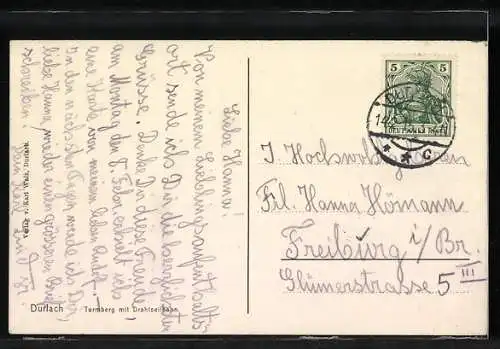 Liebe Hanna!
Von meinem Lieblingsaufenthalts-
ort sende ich Dir die herzlichsten
Grüsse. Denke Dir diese Freude,
am Montag den 8. Febr. erhielt ich
eine Karte von meinem lieben Rudolf.
In den nächsten Tagen werde ich Dir,
liebe Hanna, wieder einen grösseren Brief
schreiben.
Verlag v. Karl Walz, Durlach.
Durlach Turmberg mit Drahtseilbahn
5 5
DEUTSCHES REICH
C
I. Hochwohlgeboren
Frl. Hanna Hörmann
Freiburg i/Br.
Glümerstrasse 5 III